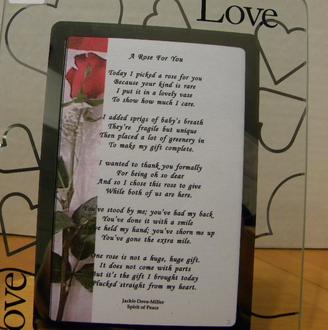 Love
A Rose For You
Today I picked a rose for you
Because your kind is rare
I put it in a lovely vase
To show how much I care.
I added sprigs of baby's breath
They're fragile but unique
Then placed a lot of greenery in
To make my gift complete.
I wanted to thank you formally
For being oh so dear
And so I chose this rose to give
While both of us are here.
You've stood by me; you've had my back
You've done it with a smile
You've held my hand; you've shorn me up
You've gone the extra mile.
One rose is not a huge, huge gift.
It does not come with parts
But it's the gift I brought today
Plucked straight from my heart.
Jackie Drew-Miller
Spirit of Peace
Love